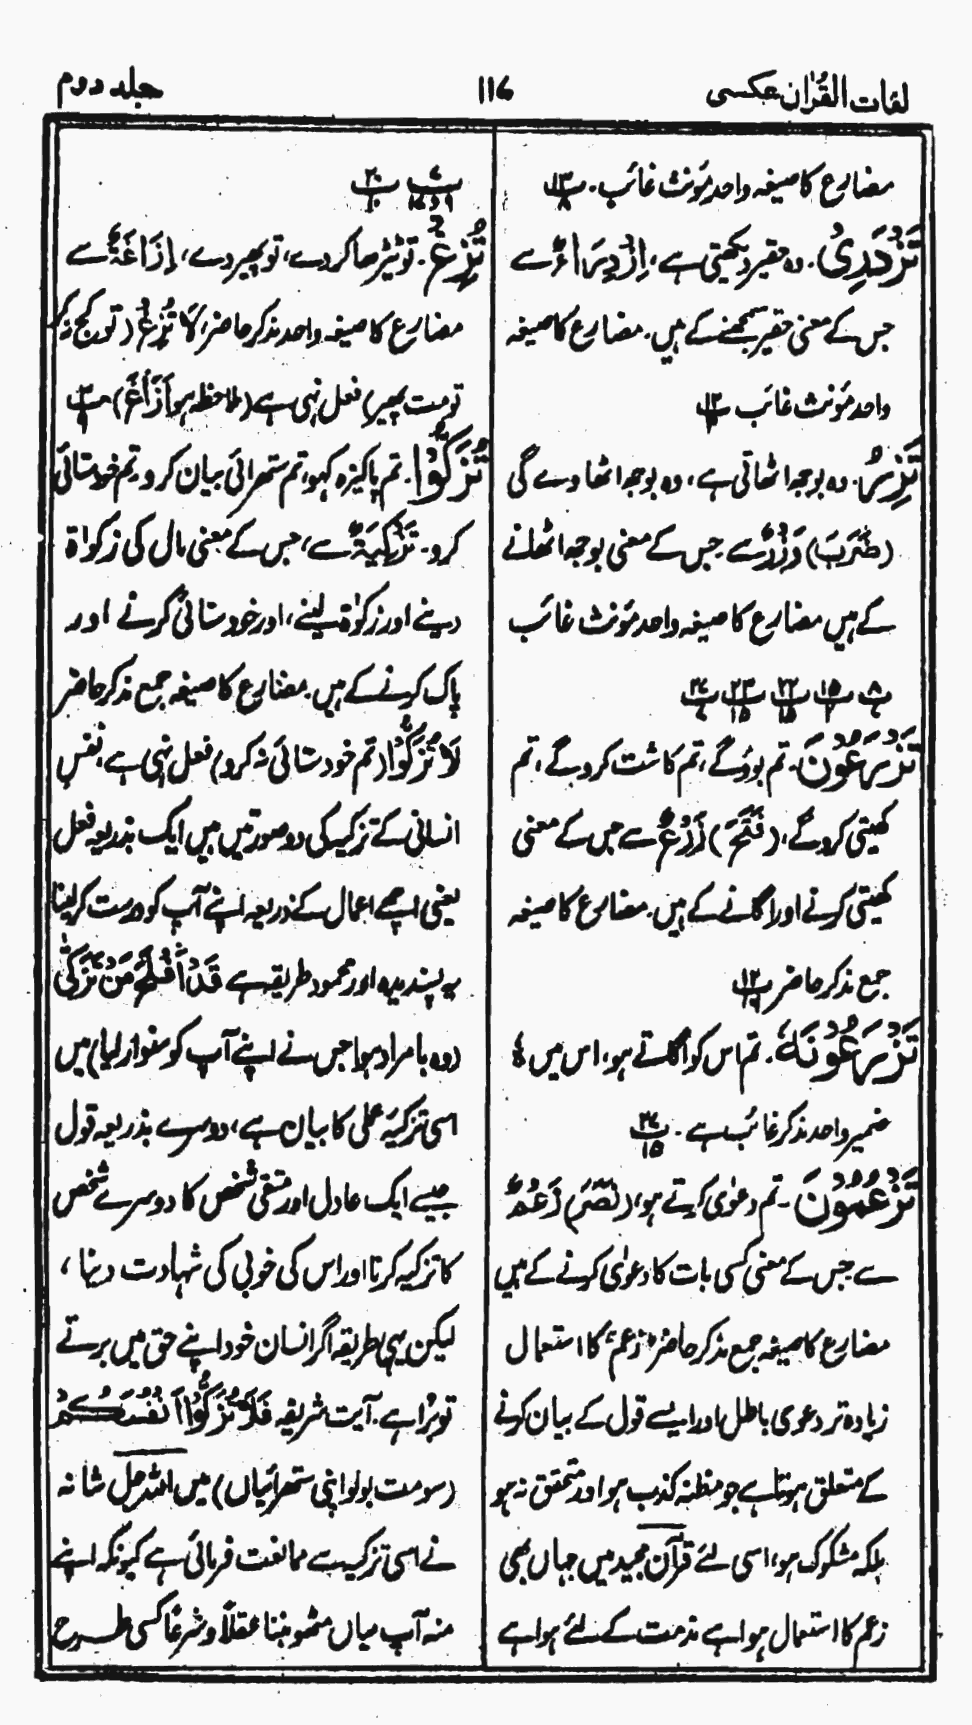 لغات القرآن عکسی
۱۱۶
جلد دوم
مضارع کا صیغہ واحد مؤنث غائب۔ ۱۲/۸
تَزْدَرِیْ۔ وہ حقیر دیکھتی ہے، اِزْدِرَاءٌ سے
جس کے معنی حقیر سمجھنے کے ہیں۔ مضارع کا صیغہ
واحد مؤنث غائب ۱۲
تَزِرُ۔ وہ بوجھ اٹھاتی ہے، وہ بوجھ اٹھاوے گی
(ضَرَبَ) وَزْرٌ سے جس کے معنی بوجھ اٹھانے
کے ہیں مضارع کا صیغہ واحد مؤنث غائب
۸ ۱۵ ۲۲ ۲۳ ۲۷
تَزْرَعُوْنَ۔ تم بوؤگے، تم کاشت کروگے، تم
کھیتی کروگے، (فَتَحَ) زَرْعٌ سے جس کے معنی
کھیتی کرنے اور اگانے کے ہیں۔ مضارع کا صیغہ
جمع مذکر حاضر ۱۲
تَزْرَعُوْنَہٗ۔ تم اس کو اگاتے ہو، اس میں ہٗ
ضمیر واحد مذکر غائب ہے۔ ۲۷/۱۵
تَزْعُمُوْنَ۔ تم دعوٰی کرتے ہو، (نَصَرَ) زَعْمٌ
سے جس کے معنی کسی بات کا دعوٰی کرنے کے ہیں
مضارع کا صیغہ جمع مذکر حاضر "زعم" کا استعمال
زیادہ تر دعوی باطل اور ایسے قول کے بیان کرنے
کے متعلق ہوتا ہے جو مظنہ کذب ہو اور متحقق نہ ہو
بلکہ مشکوک ہو، اسی لئے قرآن مجید میں جہاں بھی
زعم کا استعمال ہوا ہے مذمت کے لئے ہوا ہے
۷ ۲۰
تُزِغْ۔ تو ٹیڑھا کردے، تو پھیر دے، اِزَاغَۃٌ سے
مضارع کا صیغہ واحد مذکر حاضر، لَا تُزِغْ (تو کج نہ کر
تو مت پھیر) فعل نہی ہے (ملاحظہ ہو اَزَاغَ) ۳/۹
تُزَکُّوْا۔ تم پاکیزہ کہو، تم ستھرائی بیان کرو، تم خودستائی
کرو۔ تَزْکِیَۃٌ سے، جس کے معنی مال کی زکوٰۃ
دینے اور زکوٰۃ لینے، اور خودستائی کرنے اور
پاک کرنے کے ہیں۔ مضارع کا صیغہ جمع مذکر حاضر
لَا تُزَکُّوْا (تم خودستائی نہ کرو) فعل نہی ہے، نفس
انسانی کے تزکیہ کی دو صورتیں ہیں ایک بذریعہ فعل
یعنی اچھے اعمال کے ذریعہ اپنے آپ کو درست کرلینا
یہ پسندیدہ اور محمود طریقہ ہے قَدْ اَفْلَحَ مَنْ تَزَکّٰی
(وہ بامراد ہوا جس نے اپنے آپ کو سنوار لیا) میں
اسی تزکیۂ عملی کا بیان ہے، دوسرے بذریعہ قول
جیسے ایک عادل اور متقی شخص کا دوسرے شخص
کا تزکیہ کرنا اور اس کی خوبی کی شہادت دینا،
لیکن یہی طریقہ اگر انسان خود اپنے حق میں برتے
تو بُرا ہے۔ آیت شریفہ فَلَا تُزَکُّوْا اَنْفُسَکُمْ
(سو مت بولو اپنی ستھرائیاں) میں اللہ جل شانہ
نے اسی تزکیہ سے ممانعت فرمائی ہے کیونکہ اپنے
منہ آپ میاں مٹھو بننا عقلاً و شرعًا کسی طرح